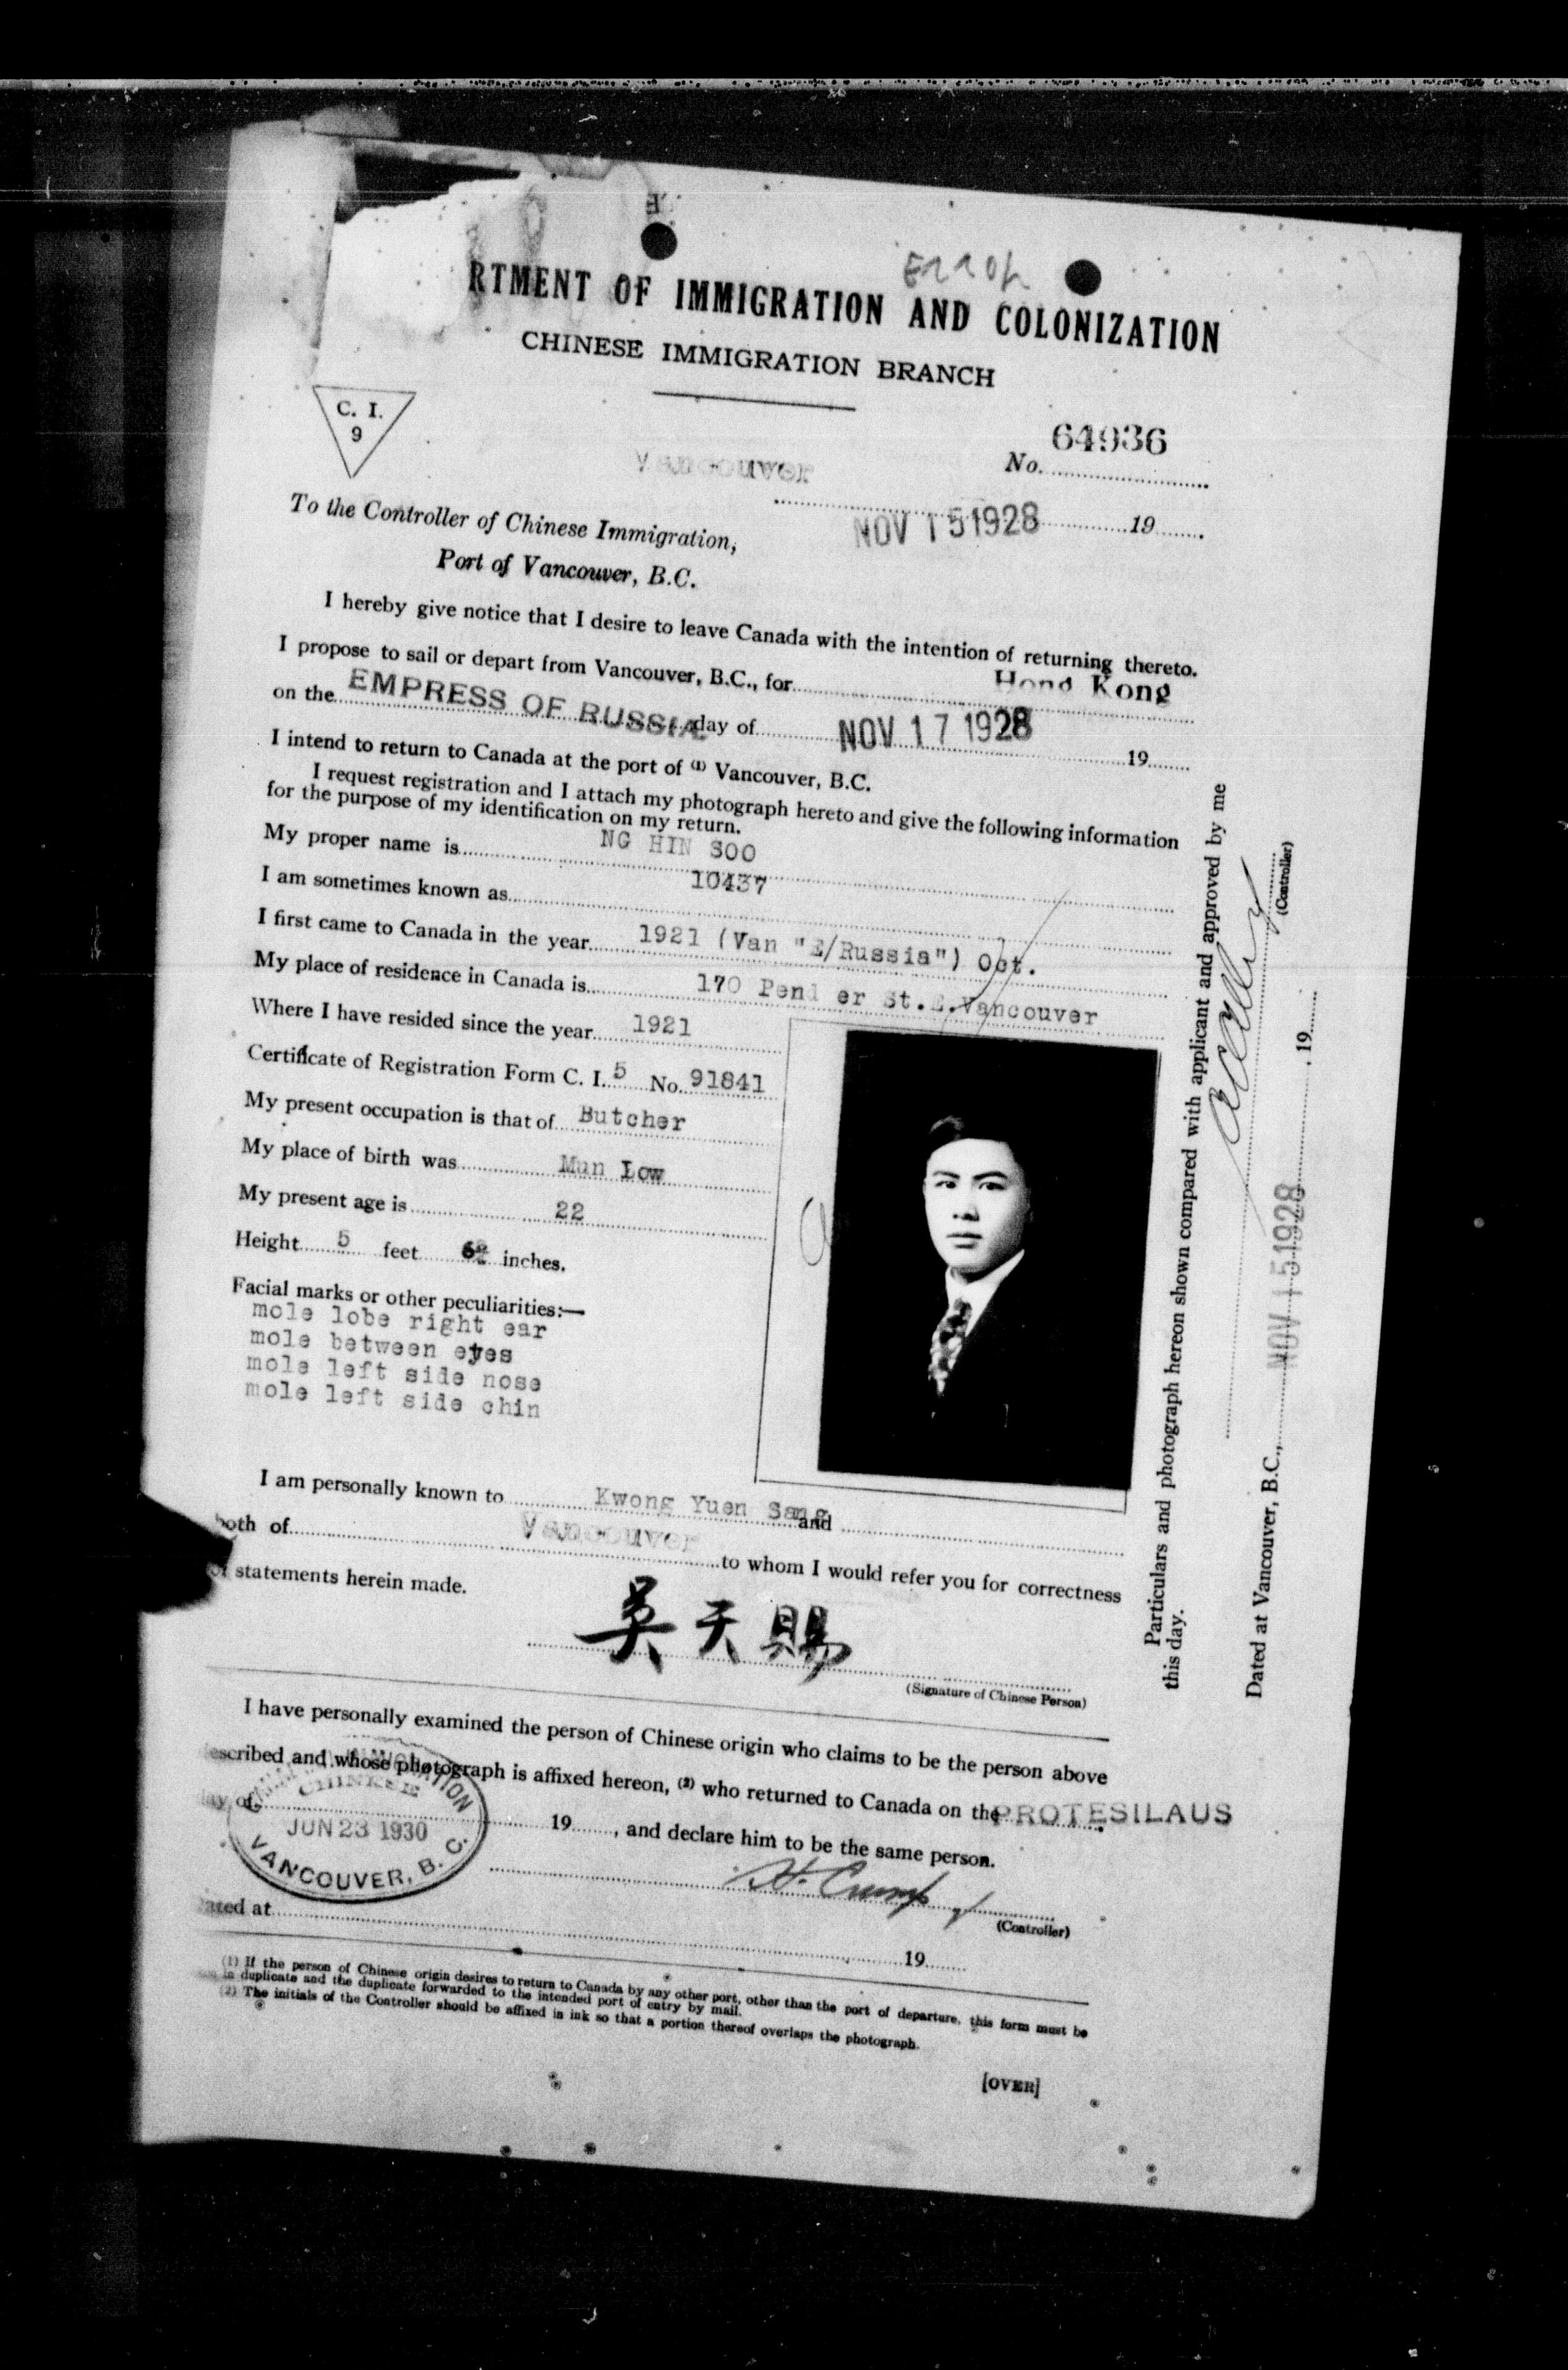 Error
RTMENT OF IMMIGRATION AND COLONIZATION
CHINESE IMMIGRATION BRANCH
C. I.
9
64936
No.
Vancouver
NOV 15 1928 19
To the Controller of Chinese Immigration,
Port of Vancouver, B.C.
I hereby give notice that I desire to leave Canada with the intention of returning thereto.
I propose to sail or depart from Vancouver, B.C., for Hong Kong
on the EMPRESS OF RUSSIA day of NOV 17 1928 19
I intend to return to Canada at the port of (1) Vancouver, B.C.
I request registration and I attach my photograph hereto and give the following information
for the purpose of my identification on my return.
My proper name is NG HIN SOO
I am sometimes known as 10437
I first came to Canada in the year 1921 (Van "E/Russia") Oct.
My place of residence in Canada is 170 Pend er St.E.Vancouver
Where I have resided since the year 1921
Certificate of Registration Form C. I. 5 No. 91841
My present occupation is that of Butcher
My place of birth was Mun Low
My present age is 22
Height 5 feet inches.
Facial marks or other peculiarities:—
mole lobe right ear
mole between eyes
mole left side nose
mole left side chin
I am personally known to Kwong Yuen Sang and
both of Vancouver to whom I would refer you for correctness
of statements herein made.
吳天賜
(Signature of Chinese Person)
I have personally examined the person of Chinese origin who claims to be the person above
escribed and whose photograph is affixed hereon, (2) who returned to Canada on the PROTESILAUS
day of 19 , and declare him to be the same person.
IMMIGRATION
CHINESE
JUN 23 1930
VANCOUVER, B. C.
H. Crump
(Controller)
ated at 19
(1) If the person of Chinese origin desires to return to Canada by any other port, other than the port of departure, this form must be
in duplicate and the duplicate forwarded to the intended port of entry by mail.
(2) The initials of the Controller should be affixed in ink so that a portion thereof overlaps the photograph.
[OVER]
Particulars and photograph hereon shown compared with applicant and approved by me
this day.
(Controller)
Dated at Vancouver, B.C., NOV 15 1928 , 19